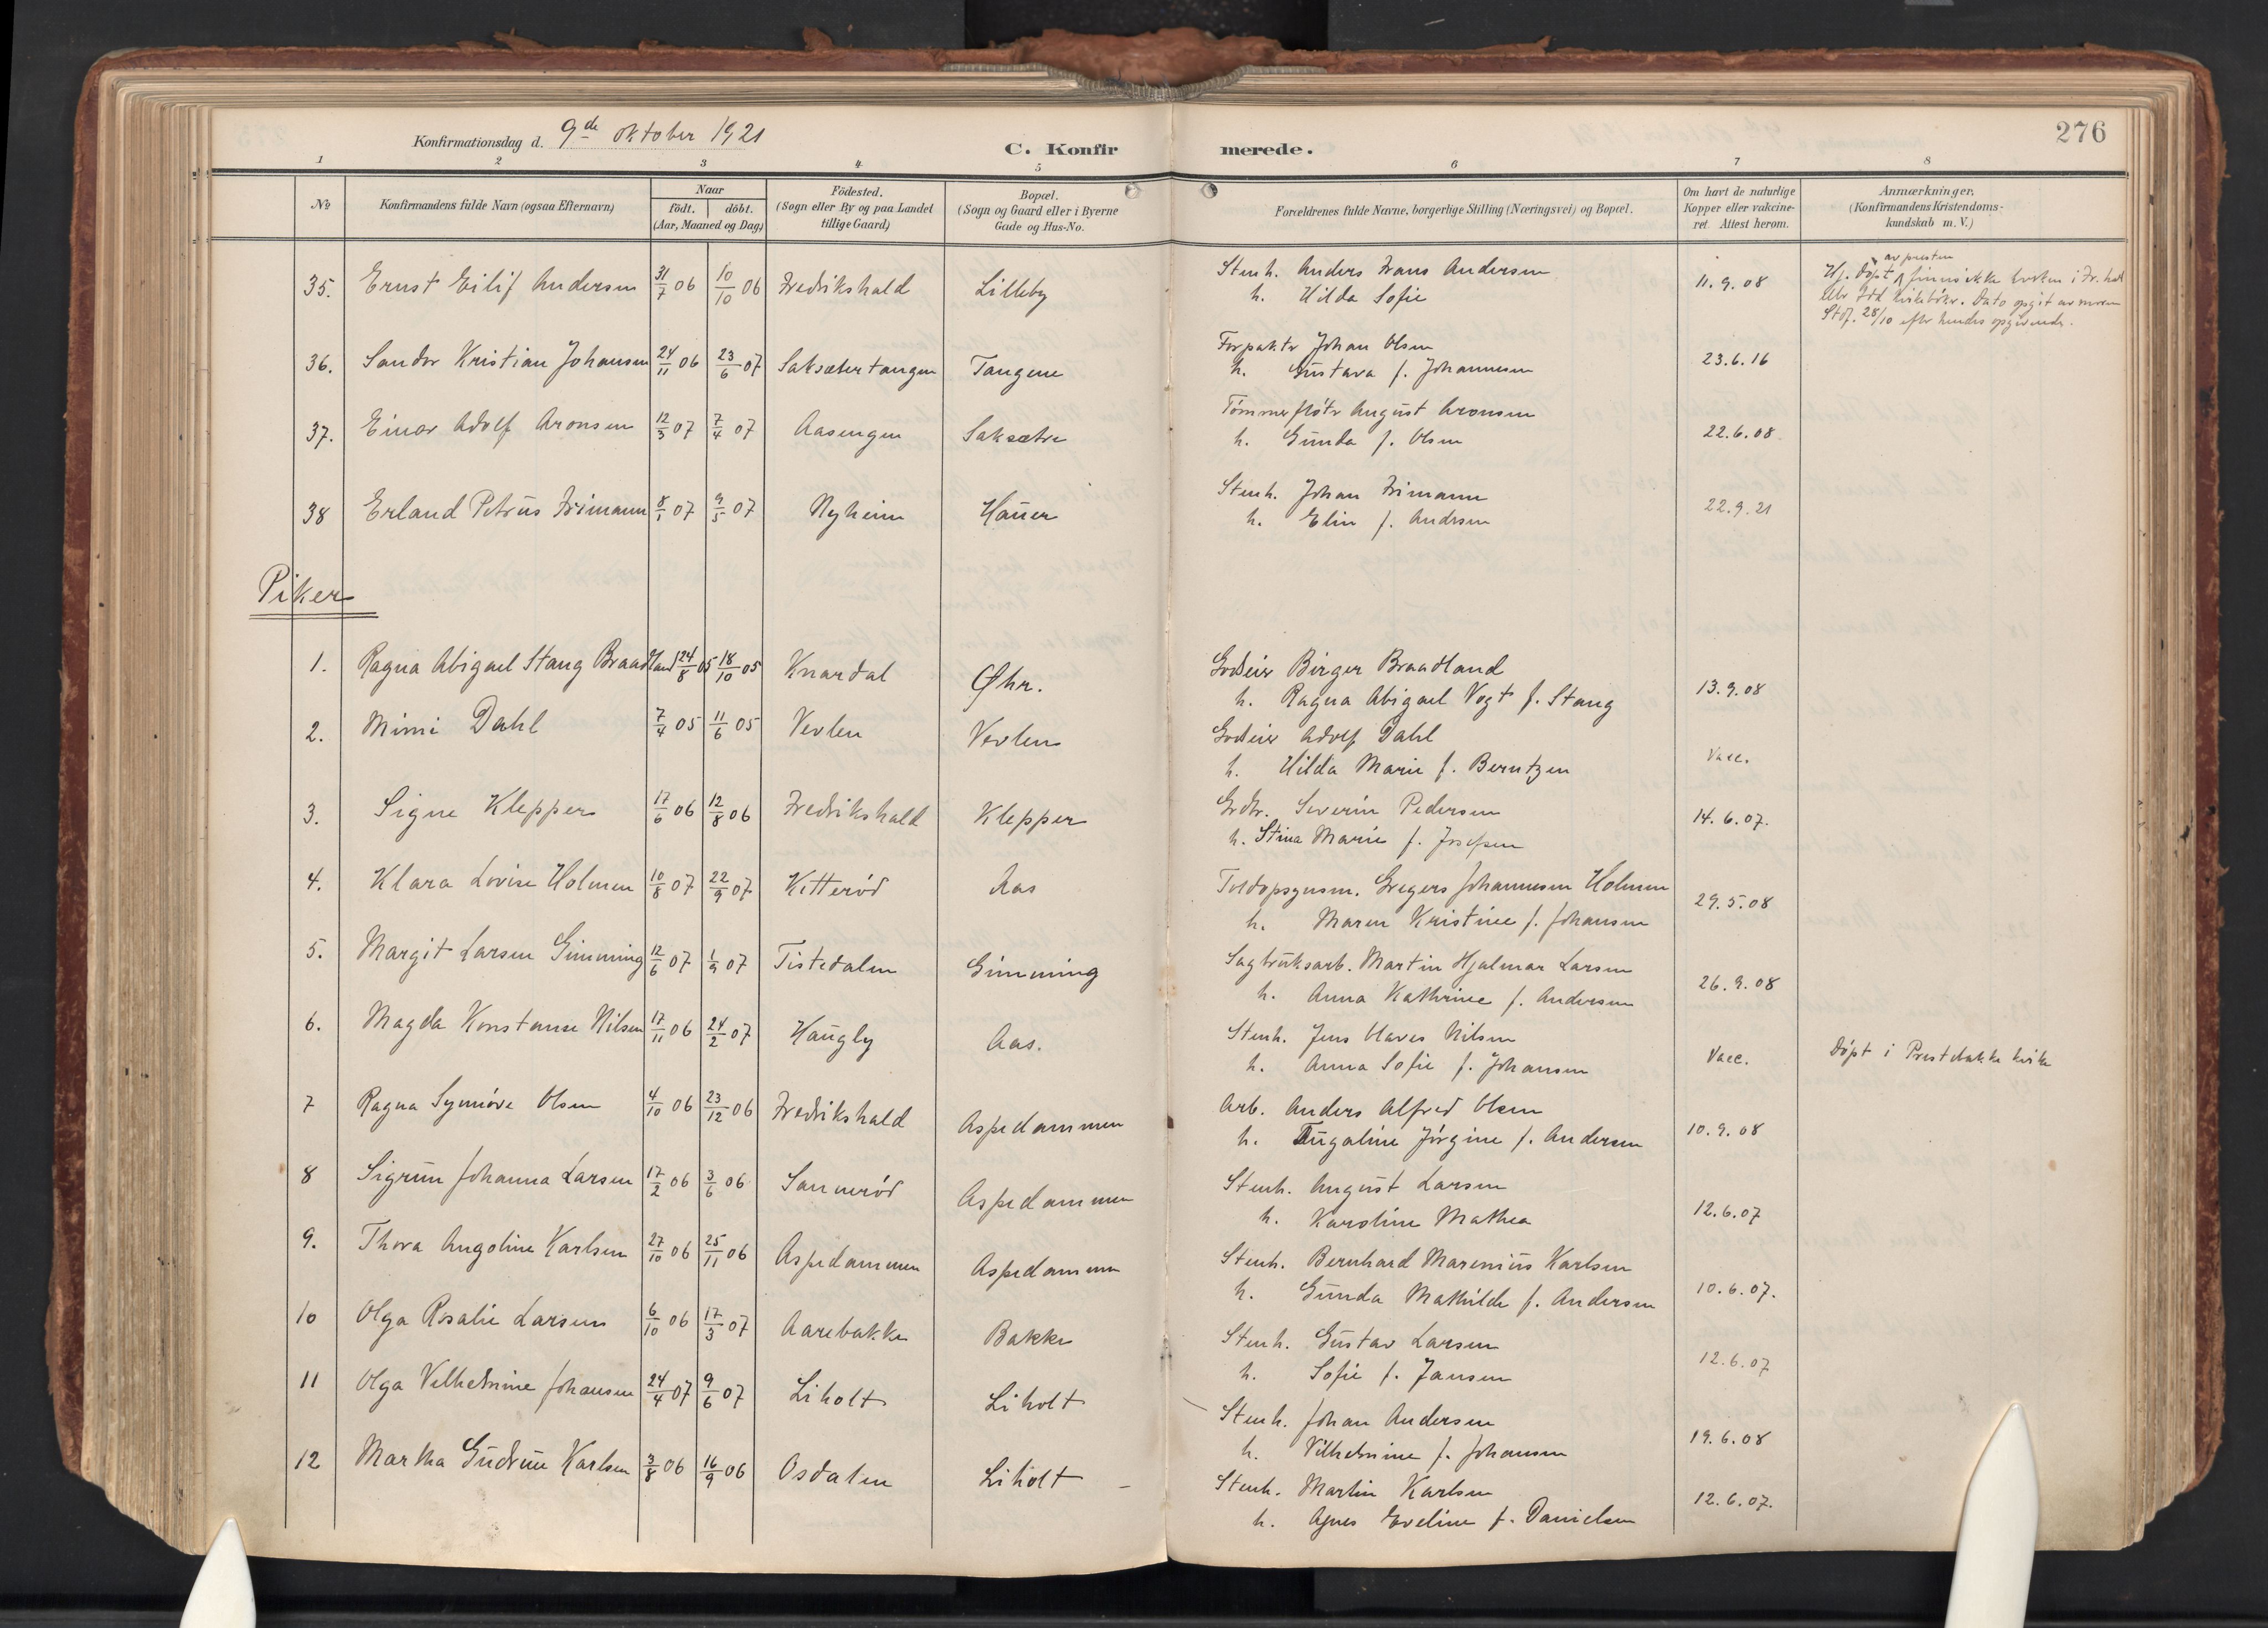 276
Konfirmationsdag d. 9de oktober 1921
C. Konfirmerede.
1 2 3 4 5 6 7 8
No
Konfirmandens fulde Navn (ogsaa Efternavn)
Naar
födt. döbt.
(Aar, Maaned og Dag)
Födested.
(Sogn eller By og paa Landet
tillige Gaard)
Bopæl.
(Sogn og Gaard eller i Byerne
Gade og Hus-No.
Forældrenes fulde Navne, borgerlige Stilling (Næringsvei) og Bopæl.
Om havt de naturlige
Kopper eller vakcine-
ret. Attest herom.
Anmærkninger,
(Konfirmandens Kristendoms-
kundskab m.V.)
35. Ernst Eilif Andersen 31/7 06 10/10 06 Fredrikshald Lilleby
Stenh. Anders Frans Andersen
h. Hilda Sofie
11.9.08
av presten
Hj. døpt, finnes ikke hverken i Fr.hald
eller Idd kirkebøker. Dato opgit av moren
Stdf. 28/10 efter hendes opgivende.
36. Sander Kristian Johansen 24/11 06 23/6 07 Saksætertangen Tangene
Forpakter Johan Olsen
h. Gustava f. Johannesen
23.6.16
37. Einar Adolf Aronsen 12/3 07 7/4 07 Aasengen Saksætre
Tømmerfløter August Aronsen
h. Gunda f. Olsen
22.6.08
38 Erland Petrus Frimann 8/1 07 9/5 07 Nyheim Hauer
Stenh. Johan Frimann
h. Elin f. Andersen
22.9.21
Piker
1. Ragna Abigael Stang Braadland 24/8 05 18/10 05 Knardal Øhr.
Godseier Birger Braadland
h. Ragna Abigael Vogt f. Stang
13.9.08
2. Mimi Dahl 7/4 05 11/6 05 Vevlen Vevlen
Godseier Adolf Dahl
h. Hilda Marie f. Berntzen
Vacc.
3. Signe Klepper 17/6 06 12/8 06 Fredrikshald Klepper
Grdbr. Severin Pedersen
h. Stina Marie f. Josefsen
14.6.07.
4. Klara Lovise Holmen 10/8 07 22/9 07 Kitterød Aas
Toldopsynsm. Gregers Johannesen Holmen
h. Maren Kristine f. Johansen
29.5.08
5. Margit Larsen Gimming 12/6 07 1/9 07 Tistedalen Gimming
Sagbruksarb. Martin Hjalmar Larsen
h. Anna Kathrine f. Andersen
26.9.08
6. Magda Konstanse Nilsen 17/11 06 24/2 07 Haugly Aas.
Stenh. Jens Olaves Nilsen
h. Anna Sofie f. Johansen
Vacc.
Døpt i Prestebakke kirke
7 Ragna Synnøve Olsen 4/10 06 23/12 06 Fredrikshald Aspedammen
Arb. Anders Alfred Olsen
h. Jørgine f. Andersen
10.9.08
8 Sigrun Johanna Larsen 17/2 06 3/6 06 Sannerød Aspedammen
Stenh. August Larsen
h. Karoline Mathea
12.6.07
9. Thora Angoline Karlsen 27/10 06 25/11 06 Aspedammen Aspedammen
Stenh. Bernhard Marenius Karlsen
h. Gunda Mathilde f. Andersen
10.6.07.
10 Olga Rosalie Larsen 6/10 06 17/3 07 Aarebakke Bakke
Stenh. Gustav Larsen
h. Sofie f. Jansen
12.6.07
11 Olga Vilhelmine Johansen 24/4 07 9/6 07 Liholt Liholt
Stenh. Johan Andersen
h. Vilhelmine f. Johansen
19.6.08
12 Martha Gudrun Karlsen 3/8 06 16/9 06 Osdalen Liholt
Stenh. Martin Karlsen
h. Agnes Eveline f. Danielsen
12.6.07.